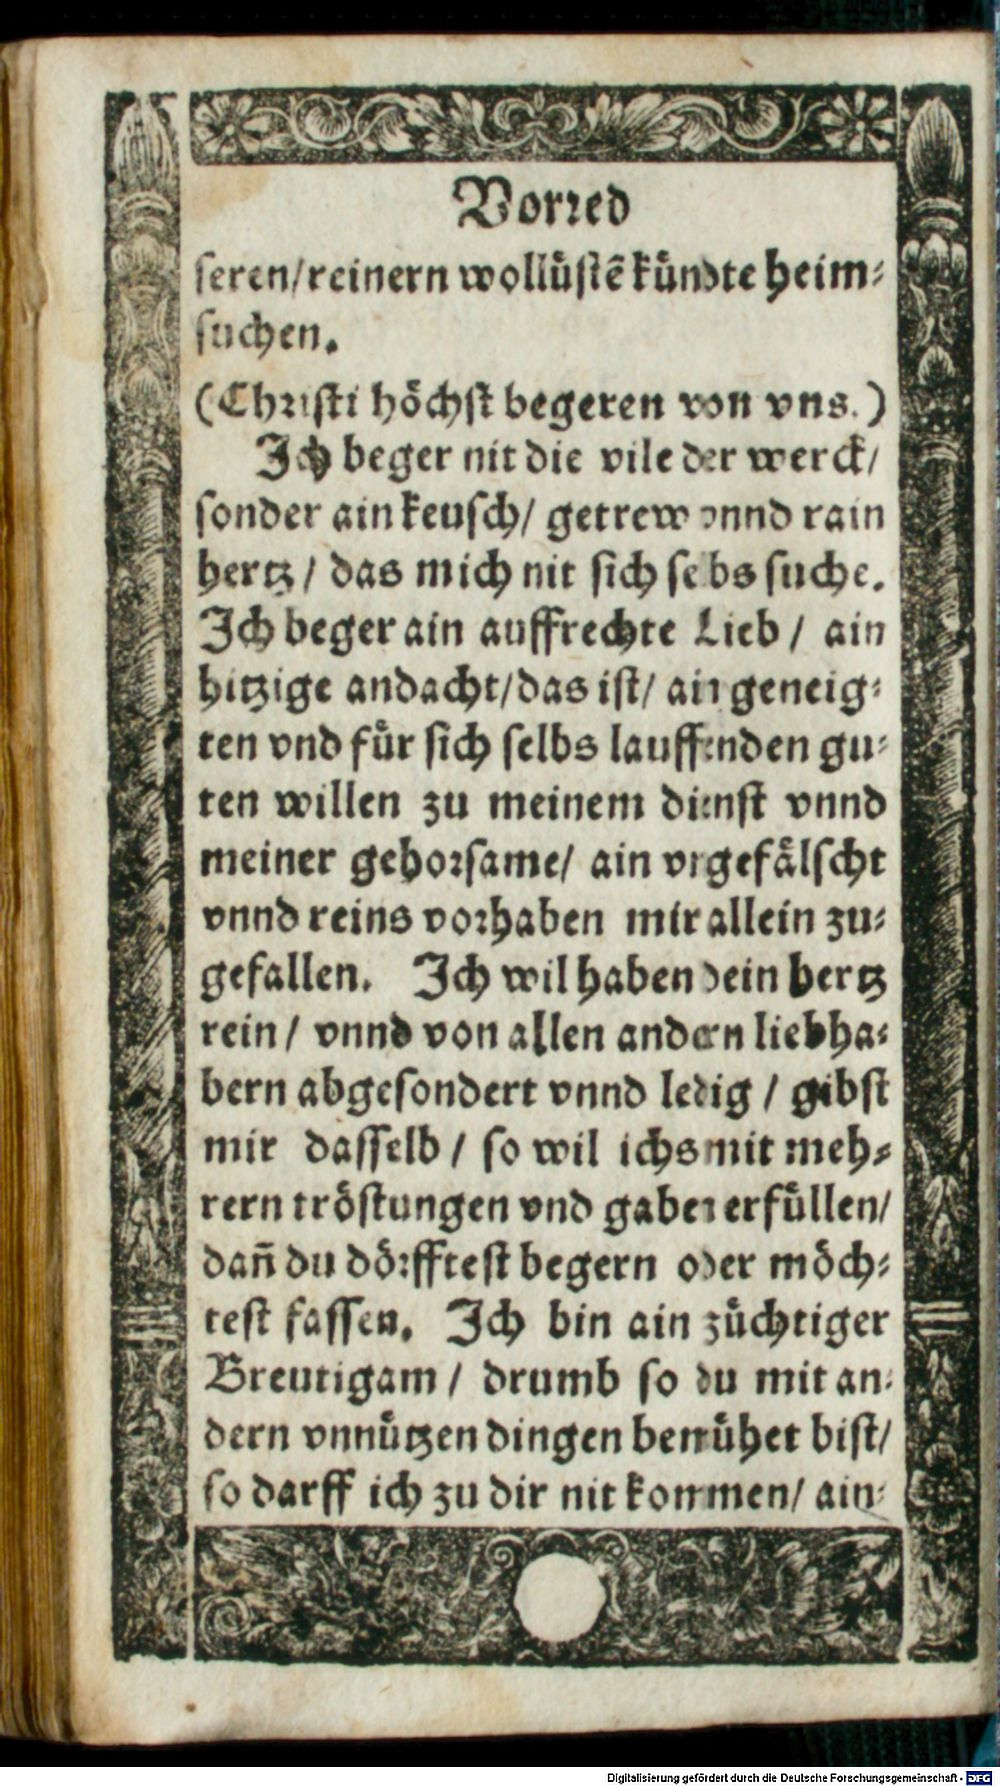 Vorred
seren/reinern wollüstẽ kündte heim-
suchen.
(Christi höchst begeren von vns.)
Ich beger nit die vile der werck/
sonder ain keusch/ getrew vnnd rain
hertz/ das mich nit sich selbs suche.
Ich beger ain auffrechte Lieb/ ain
hitzige andacht/das ist/ ain geneig-
ten vnd für sich selbs lauffenden gu-
ten willen zu meinem dienst vnnd
meiner gehorsame/ ain vngefälscht
vnnd reins vorhaben mir allein zu-
gefallen. Ich wil haben dein hertz
rein/ vnnd von allen andern liebha-
bern abgesondert vnnd ledig/ gibst
mir dasselb/ so wil ichs mit meh-
rern tröstungen vnd gaben erfüllen/
dañ du dörfftest begern oder möch-
test fassen. Ich bin ain züchtiger
Breutigam/ drumb so du mit an-
dern vnnützen dingen bemühet bist/
so darff ich zu dir nit kommen/ ain-
Digitalisierung gefördert durch die Deutsche Forschungsgemeinschaft - DFG